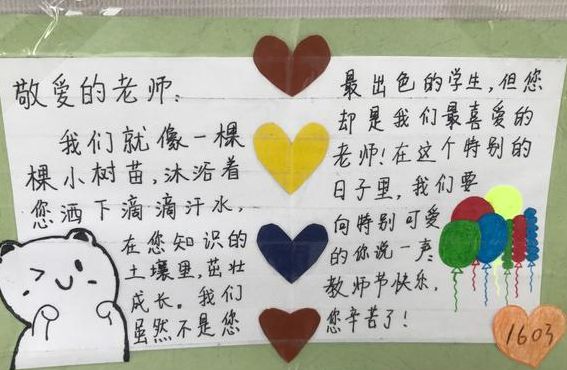 敬爱的老师：
我们就像一棵
棵小树苗，沐浴着
您洒下滴滴汗水，
在您知识的
土壤里，茁壮
成长。我们
虽然不是您
最出色的学生，但您
却是我们最喜爱的
老师！在这个特别的
日子里，我们要
向特别可爱
的你说一声：
教师节快乐，
您辛苦了！
1603